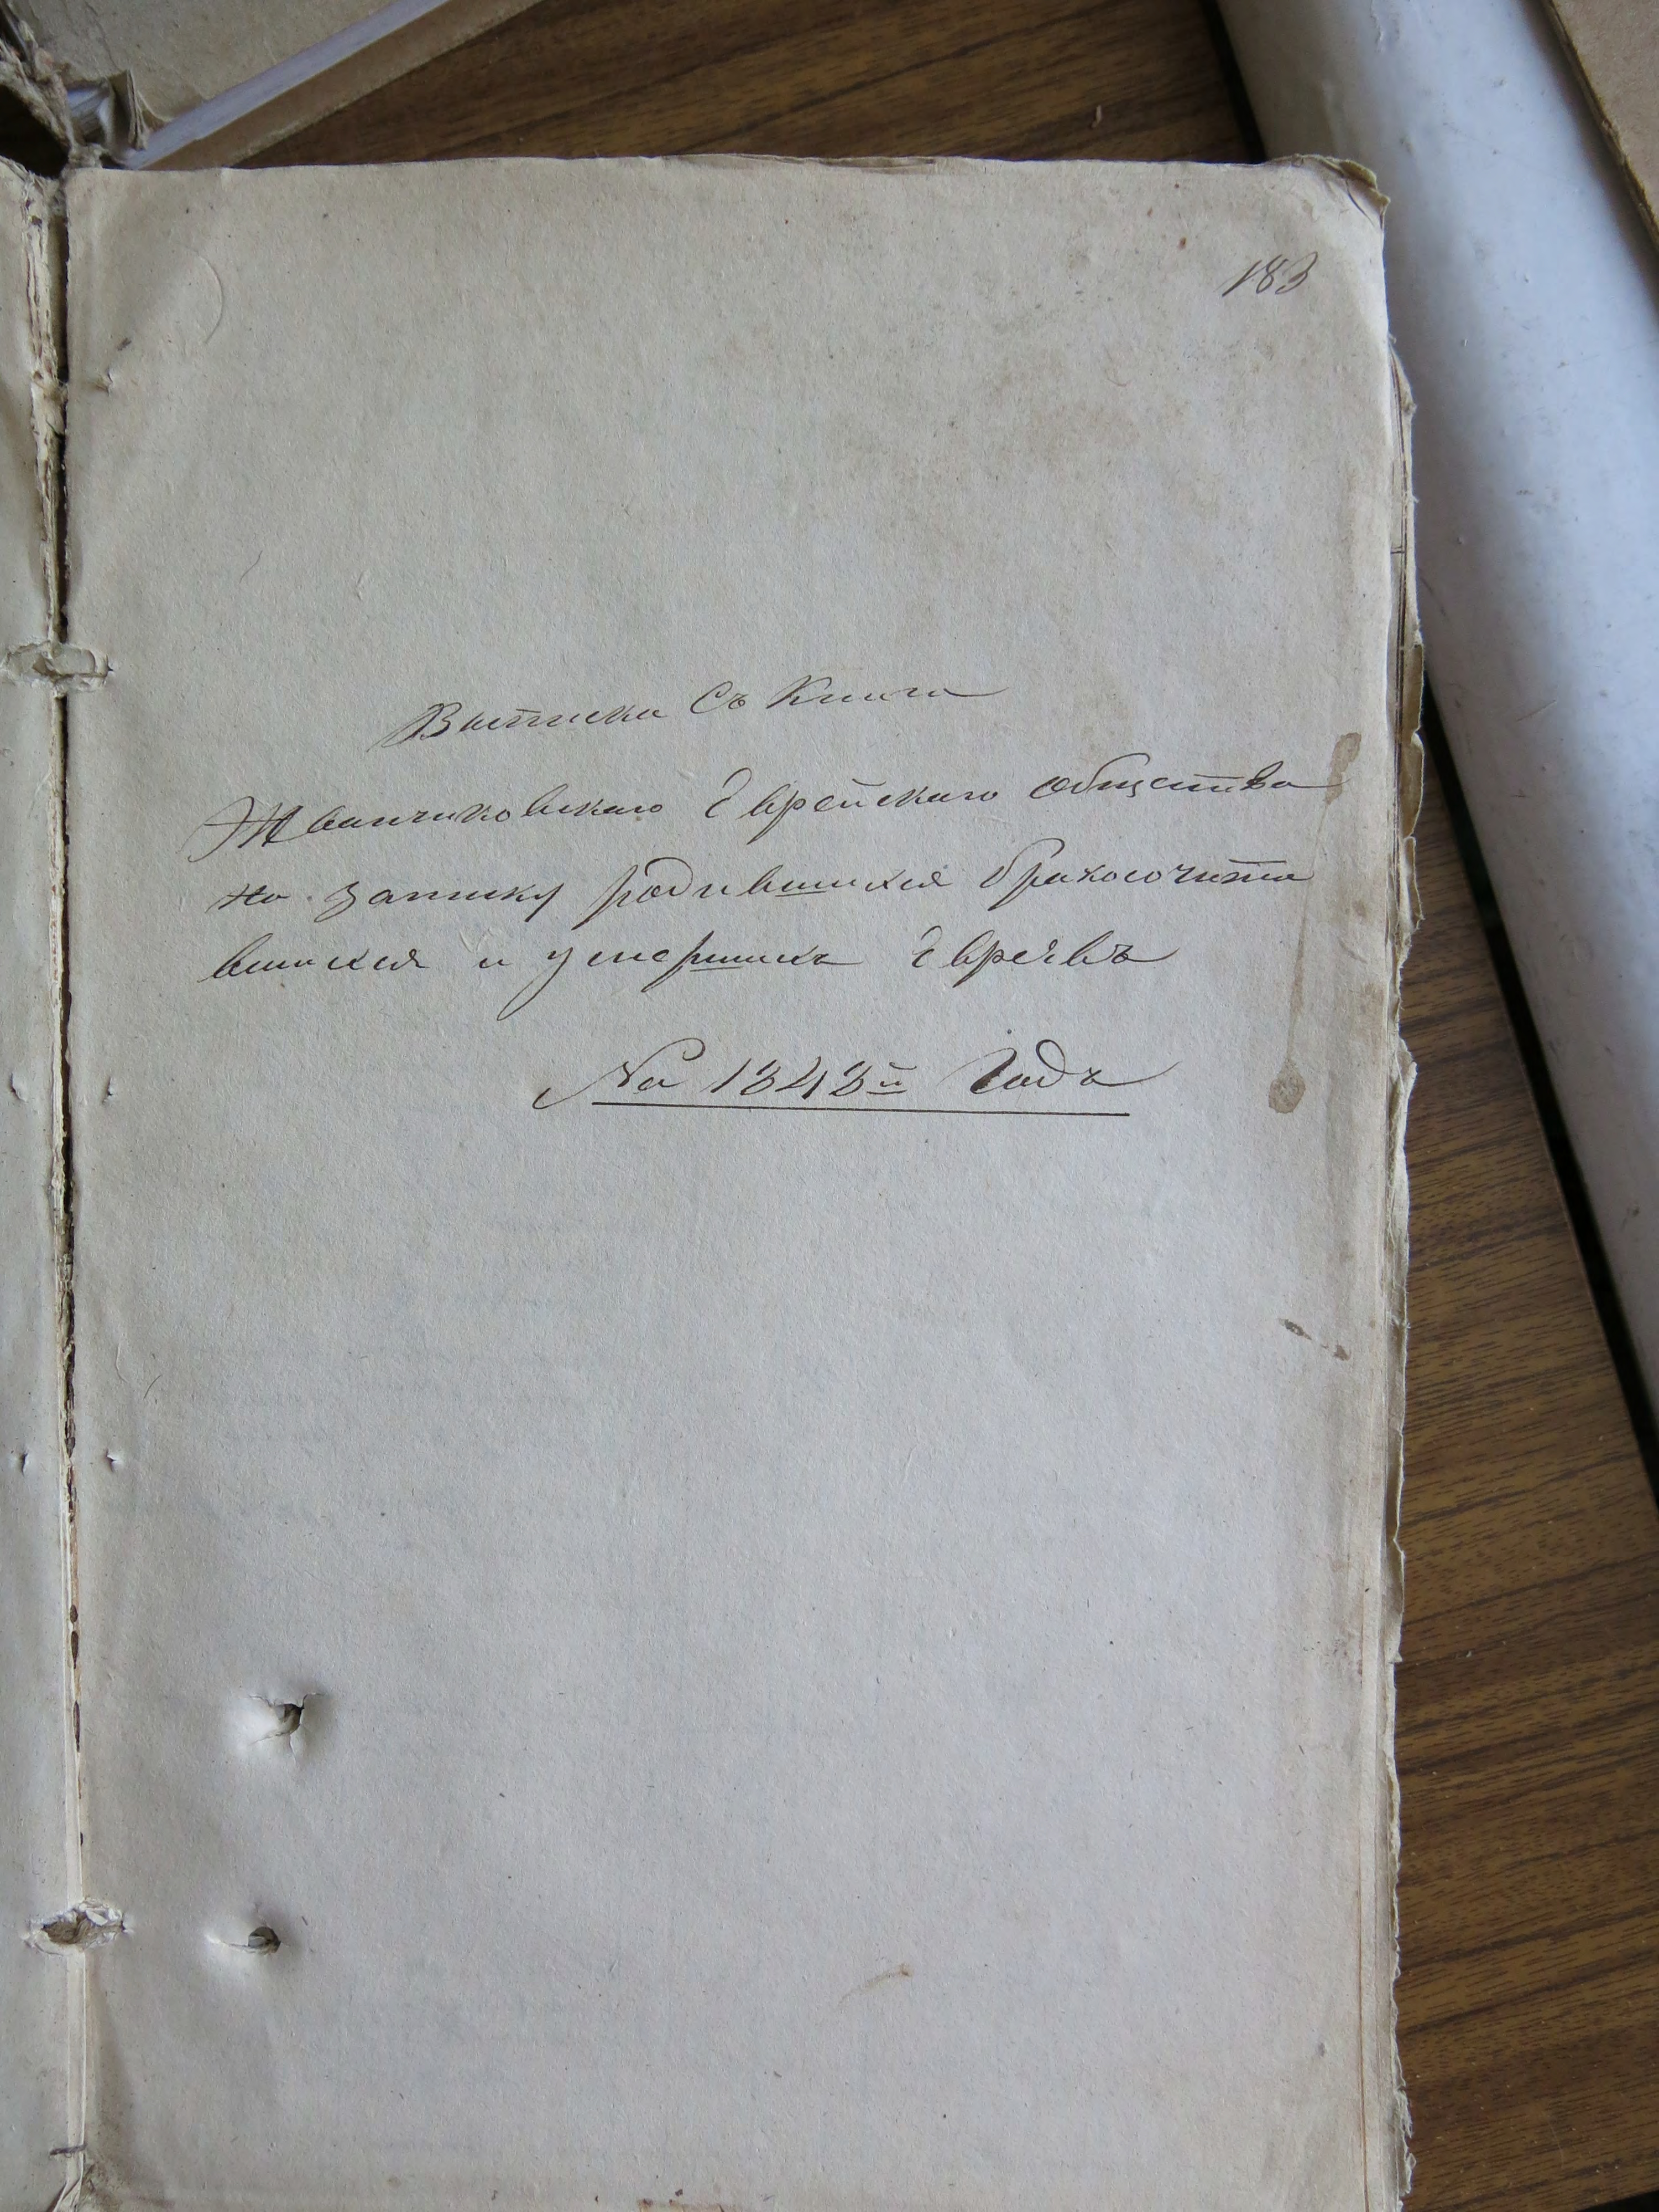 183
Выписка Съ Книги
Жванчиковскаго Еврейскаго общества
на записку родившихся бракосочита
вшихся и умершихъ Евреевъ
На 1843й Годъ